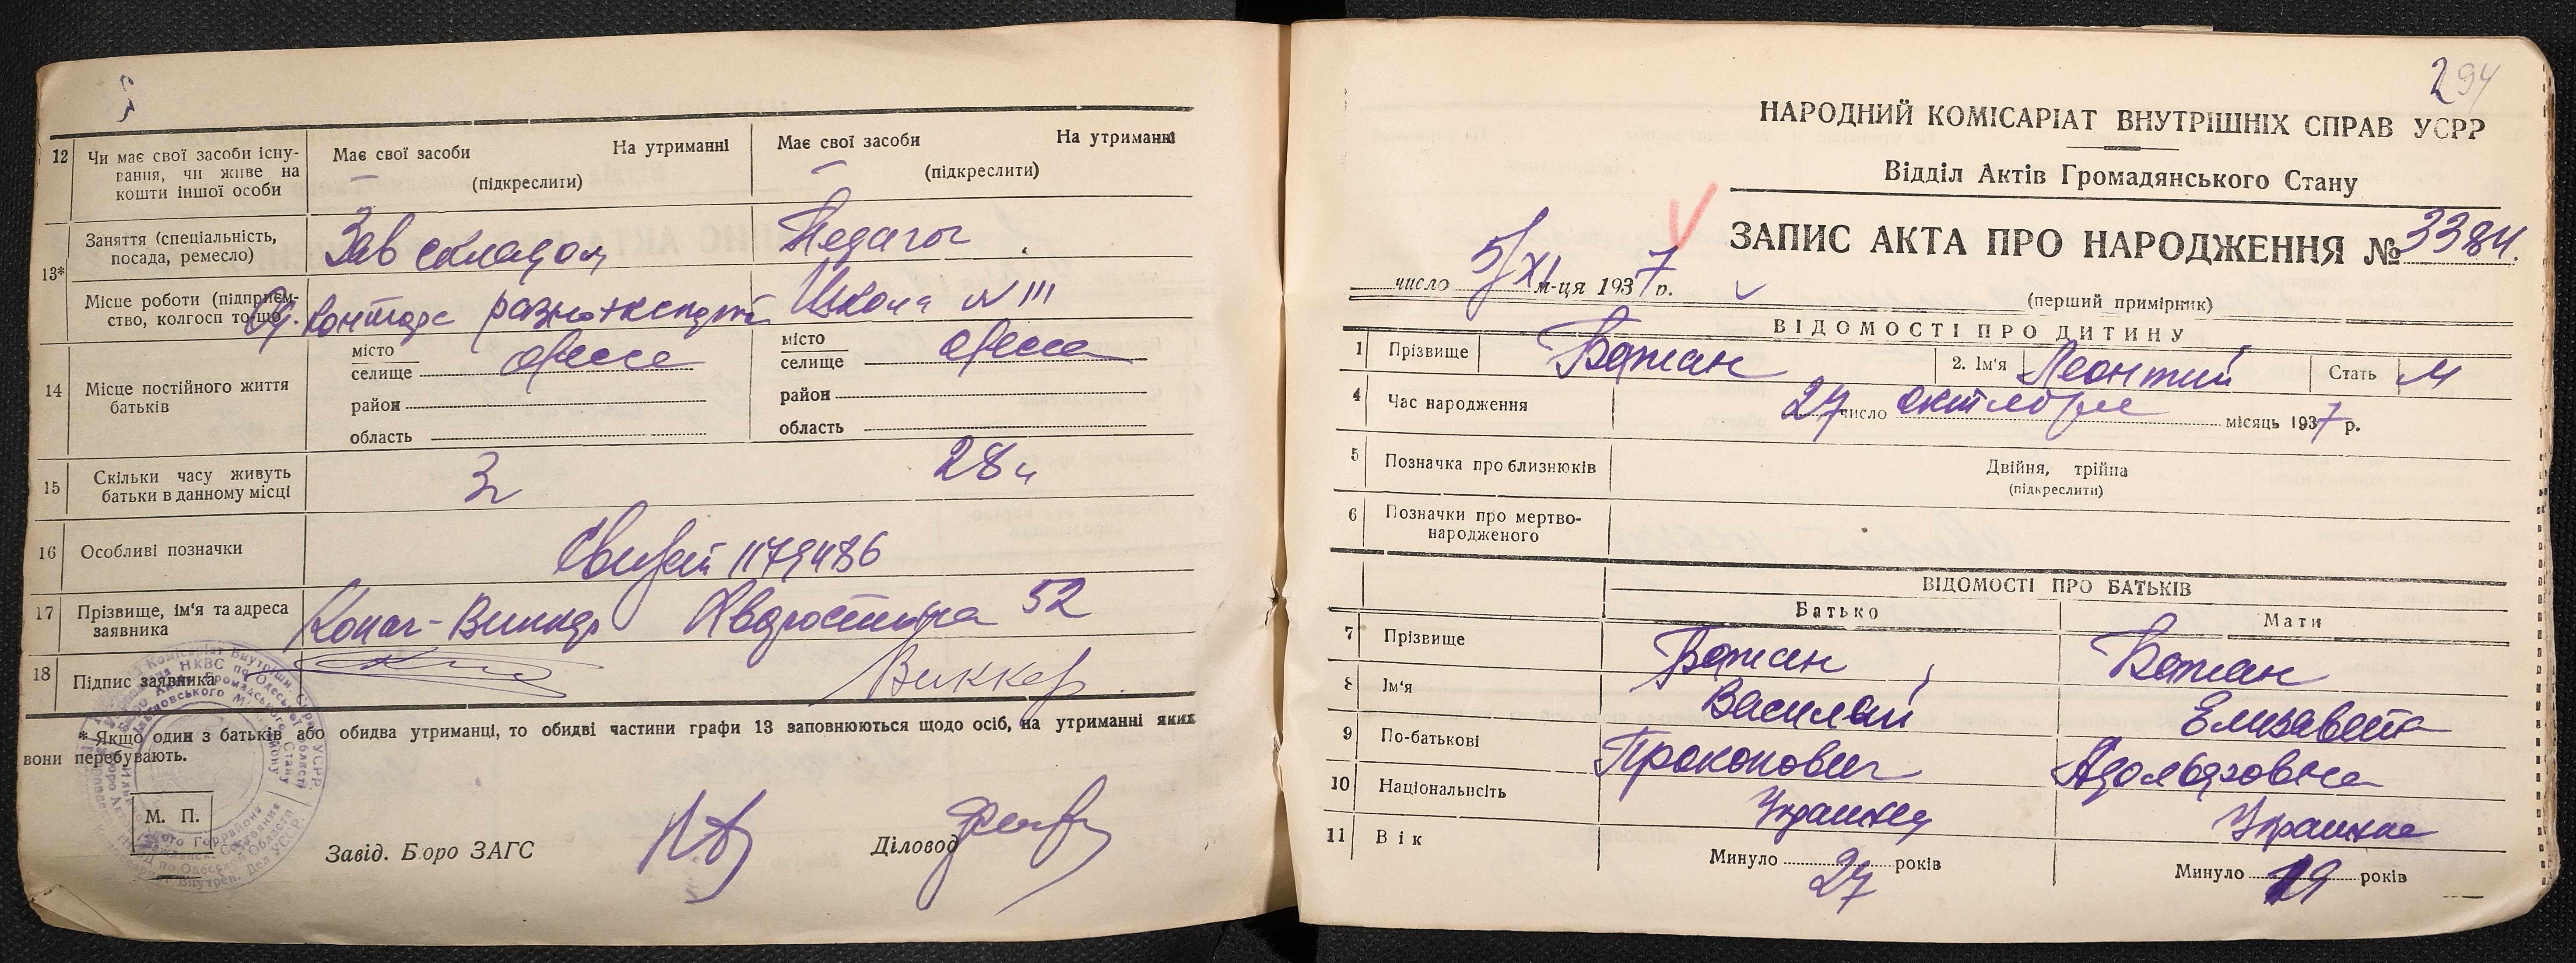 12 Чи має свої засоби існу-
вання, чи живе на
кошти іншої особи
Має свої засоби На утриманні
(підкреслити)
Має свої засоби На утриманні
(підкреслити)
13*
Заняття (спеціальність,
посада, ремесло)
Зав складом
Педагог
Місце роботи (підприєм-
ство, колгосп то-що).
Школа № III
14 Місце постійного життя
батьків
місто
селище Одесса
район
область
місто
селище Одесса
район
область
15 Скільки часу живуть
батьки в данному місці
16 Особливі позначки
1179486
17 Прізвище, ім'я та адреса
заявника
52
18 Підпис заявника
Виккер
* Якщо один з батьків або обидва утриманці, то обидві частини графи 13 заповнюються щодо осіб, на утриманні яких
вони перебувають.
М. П.
Завід. Бюро ЗАГС
Діловод
294
НАРОДНИЙ КОМІСАРІАТ ВНУТРІШНІХ СПРАВ УСРР
Відділ Актів Громадянського Стану
ЗАПИС АКТА ПРО НАРОДЖЕННЯ № 3384.
число 5/XI м-ця 1937 р.
(перший примірник)
ВІДОМОСТІ ПРО ДИТИНУ
1 Прізвище Бажан 2. Ім'я Леонтий Стать М
4 Час народження 27 число октября місяць 1937 р.
5 Позначка про близнюків Двійня, трійна
(підкреслити)
6 Позначки про мертво-
народженого
ВІДОМОСТІ ПРО БАТЬКІВ
Батько Мати
7 Прізвище Бажан Бажан
8 Ім'я Василий Елизавета
9 По-батькові Прокопович Адольфовна
10 Національність
11 Вік Минуло 27 років Минуло 29 років